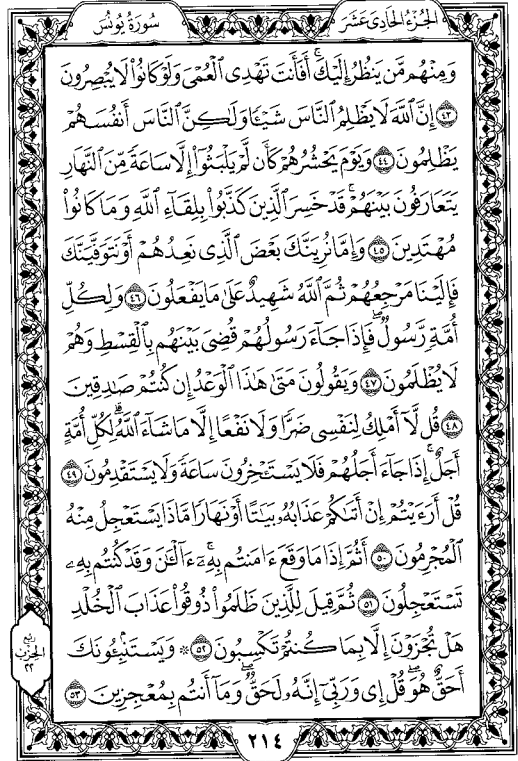 الجزء الحادى عشر
سورة يونس
وَمِنْهُم مَّن يَنظُرُ إِلَيْكَۚ أَفَأَنتَ تَهْدِى ٱلْعُمْىَ وَلَوْ كَانُوا۟ لَا يُبْصِرُونَ
٤٣ إِنَّ ٱللَّهَ لَا يَظْلِمُ ٱلنَّاسَ شَيْـًٔا وَلَـٰكِنَّ ٱلنَّاسَ أَنفُسَهُمْ
يَظْلِمُونَ ٤٤ وَيَوْمَ يَحْشُرُهُمْ كَأَن لَّمْ يَلْبَثُوٓا۟ إِلَّا سَاعَةً مِّنَ ٱلنَّهَارِ
يَتَعَارَفُونَ بَيْنَهُمْۚ قَدْ خَسِرَ ٱلَّذِينَ كَذَّبُوا۟ بِلِقَآءِ ٱللَّهِ وَمَا كَانُوا۟
مُهْتَدِينَ ٤٥ وَإِمَّا نُرِيَنَّكَ بَعْضَ ٱلَّذِى نَعِدُهُمْ أَوْ نَتَوَفَّيَنَّكَ
فَإِلَيْنَا مَرْجِعُهُمْ ثُمَّ ٱللَّهُ شَهِيدٌ عَلَىٰ مَا يَفْعَلُونَ ٤٦ وَلِكُلِّ
أُمَّةٍ رَّسُولٌۖ فَإِذَا جَآءَ رَسُولُهُمْ قُضِىَ بَيْنَهُم بِٱلْقِسْطِ وَهُمْ
لَا يُظْلَمُونَ ٤٧ وَيَقُولُونَ مَتَىٰ هَـٰذَا ٱلْوَعْدُ إِن كُنتُمْ صَـٰدِقِينَ
٤٨ قُل لَّآ أَمْلِكُ لِنَفْسِى ضَرًّا وَلَا نَفْعًا إِلَّا مَا شَآءَ ٱللَّهُۗ لِكُلِّ أُمَّةٍ
أَجَلٌۚ إِذَا جَآءَ أَجَلُهُمْ فَلَا يَسْتَـْٔخِرُونَ سَاعَةً وَلَا يَسْتَقْدِمُونَ ٤٩
قُلْ أَرَءَيْتُمْ إِنْ أَتَىٰكُمْ عَذَابُهُۥ بَيَـٰتًا أَوْ نَهَارًا مَّاذَا يَسْتَعْجِلُ مِنْهُ
ٱلْمُجْرِمُونَ ٥٠ أَثُمَّ إِذَا مَا وَقَعَ ءَامَنتُم بِهِۦٓۚ ءَآلْـَٔـٰنَ وَقَدْ كُنتُم بِهِۦ
تَسْتَعْجِلُونَ ٥١ ثُمَّ قِيلَ لِلَّذِينَ ظَلَمُوا۟ ذُوقُوا۟ عَذَابَ ٱلْخُلْدِ
هَلْ تُجْزَوْنَ إِلَّا بِمَا كُنتُمْ تَكْسِبُونَ ٥٢ ۞ وَيَسْتَنۢبِـُٔونَكَ
أَحَقٌّ هُوَۖ قُلْ إِى وَرَبِّىٓ إِنَّهُۥ لَحَقٌّۖ وَمَآ أَنتُم بِمُعْجِزِينَ ٥٣
ربع
الحزب
٢٢
٢١٤